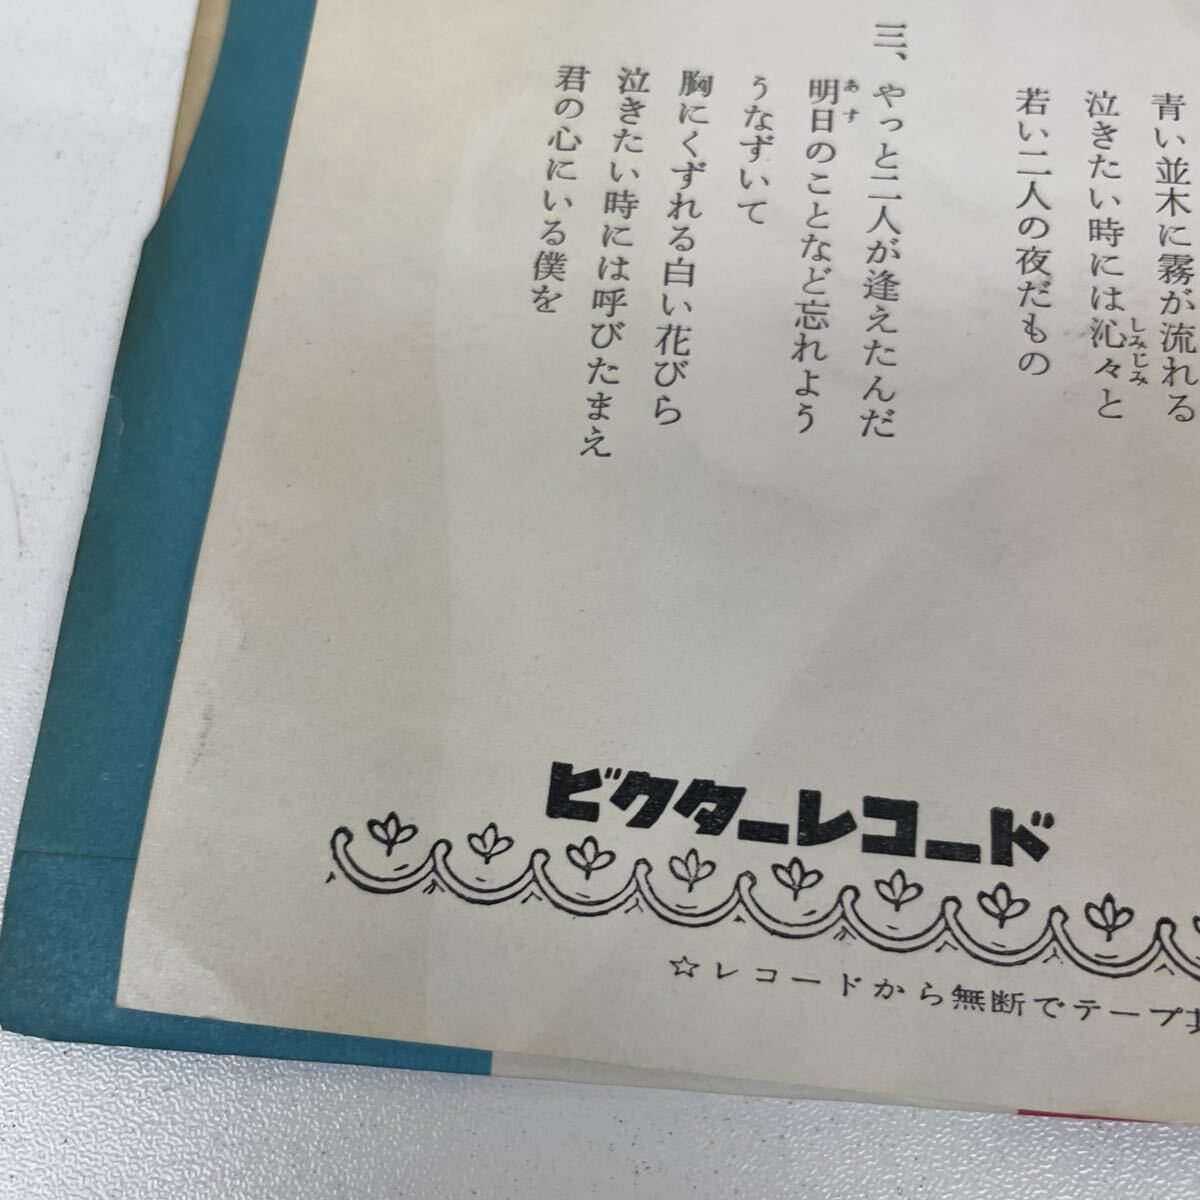 青い並木に霧が流れる
泣きたい時には沁々と
しみじみ
若い二人の夜だもの
三、やっと二人が逢えたんだ
明日のことなど忘れよう
あす
うなずいて
胸にくずれる白い花びら
泣きたい時には呼びたまえ
君の心にいる僕を
ビクターレコード
☆レコードから無断でテープ